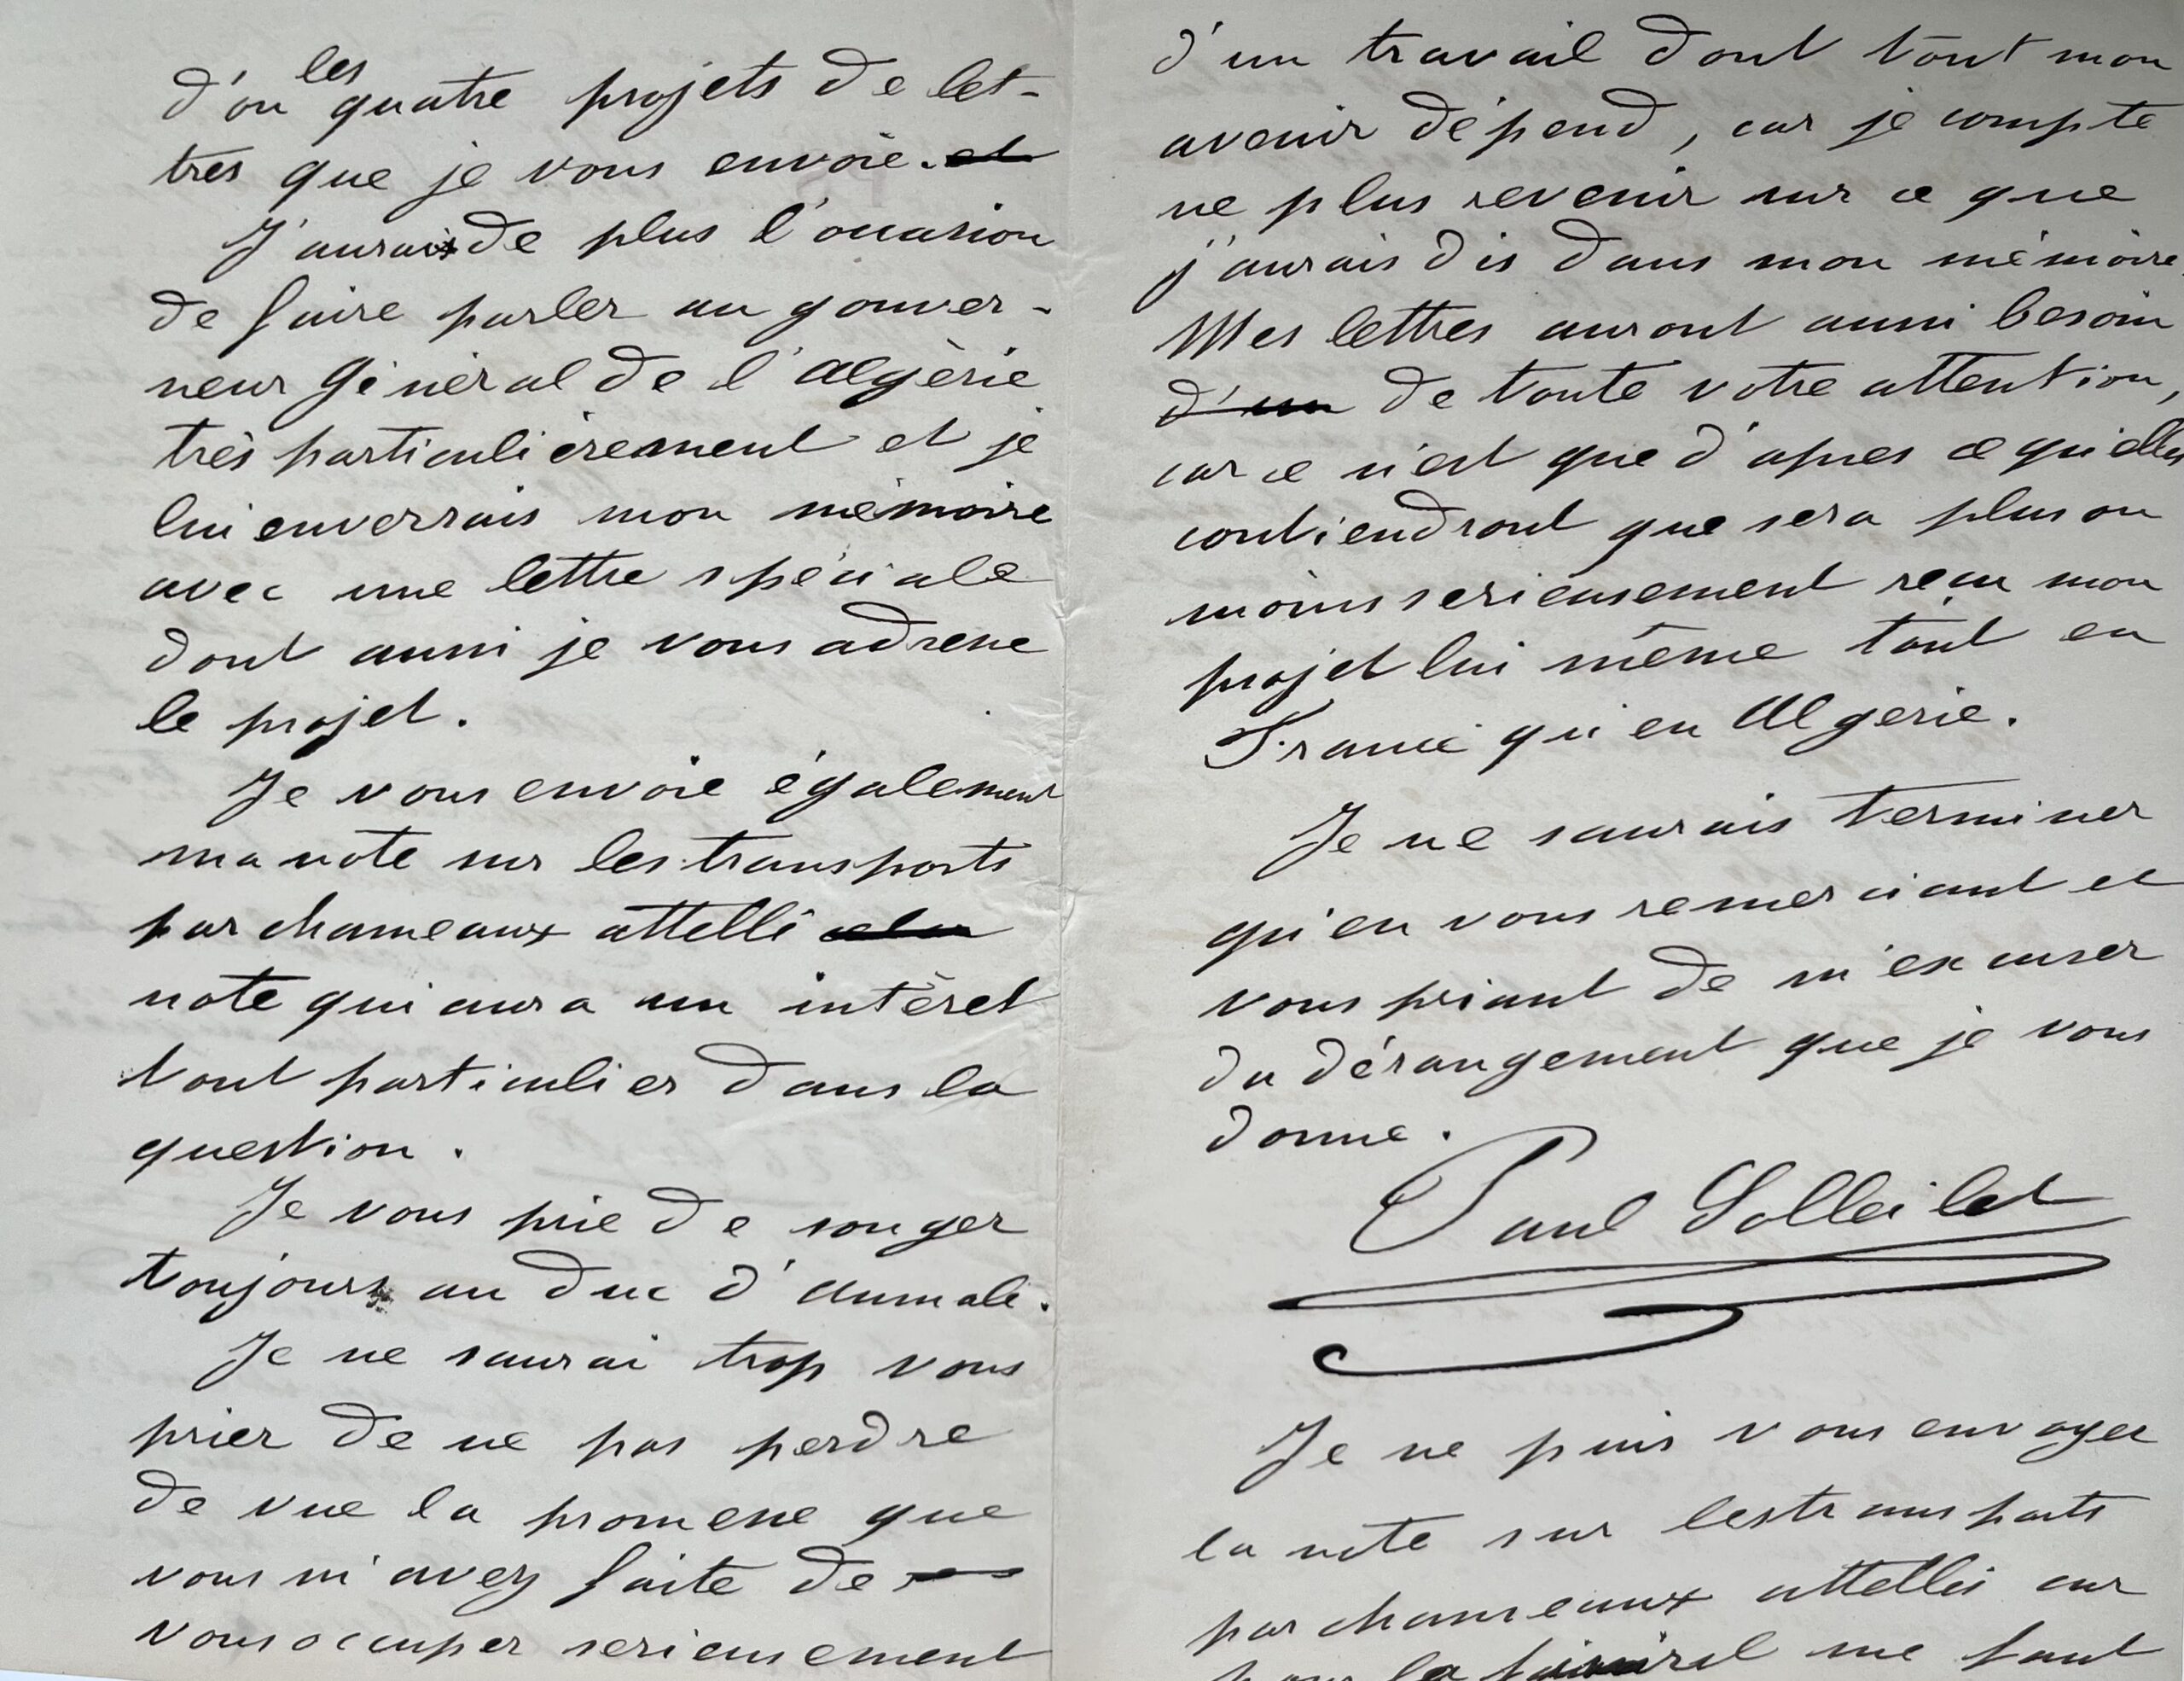 d'ou les quatre projets de let-
tres que je vous envoie. et
J'aurais de plus l'occasion
de faire parler au gouver-
neur Général de l'Algèrie
très particulièrement et je
lui enverrais mon mémoire
avec une lettre spéciale
dont aussi je vous adresse
le projet.
Je vous envoie également
ma note sur les transports
par chameaux attellé
note qui aura un intèret
tout particulier dans la
question.
Je vous prie de songer
toujours au duc d'Aumale.
Je ne saurai trop vous
prier de ne pas perdre
de vue la promesse que
vous m'avez faite de
vous occuper serieusement
d'un travail dont tout mon
avenir dépend, car je compte
ne plus revenir sur ce que
j'aurais dis dans mon mémoire
Mes lettres auront aussi besoin
d'un de toute votre attention,
car ce n'est que d'apres ce qu'elles
contiendront que sera plus ou
moins serieusement reçu mon
projet lui même tant en
France qu'en Algerie.
Je ne saurais terminer
qu'en vous remerciant et
vous priant de m'excuser
du dérangement que je vous
donne.
Paul Solleillet
Je ne puis vous envoyer
la note sur les transports
par chameaux attellés car
pour la me faut